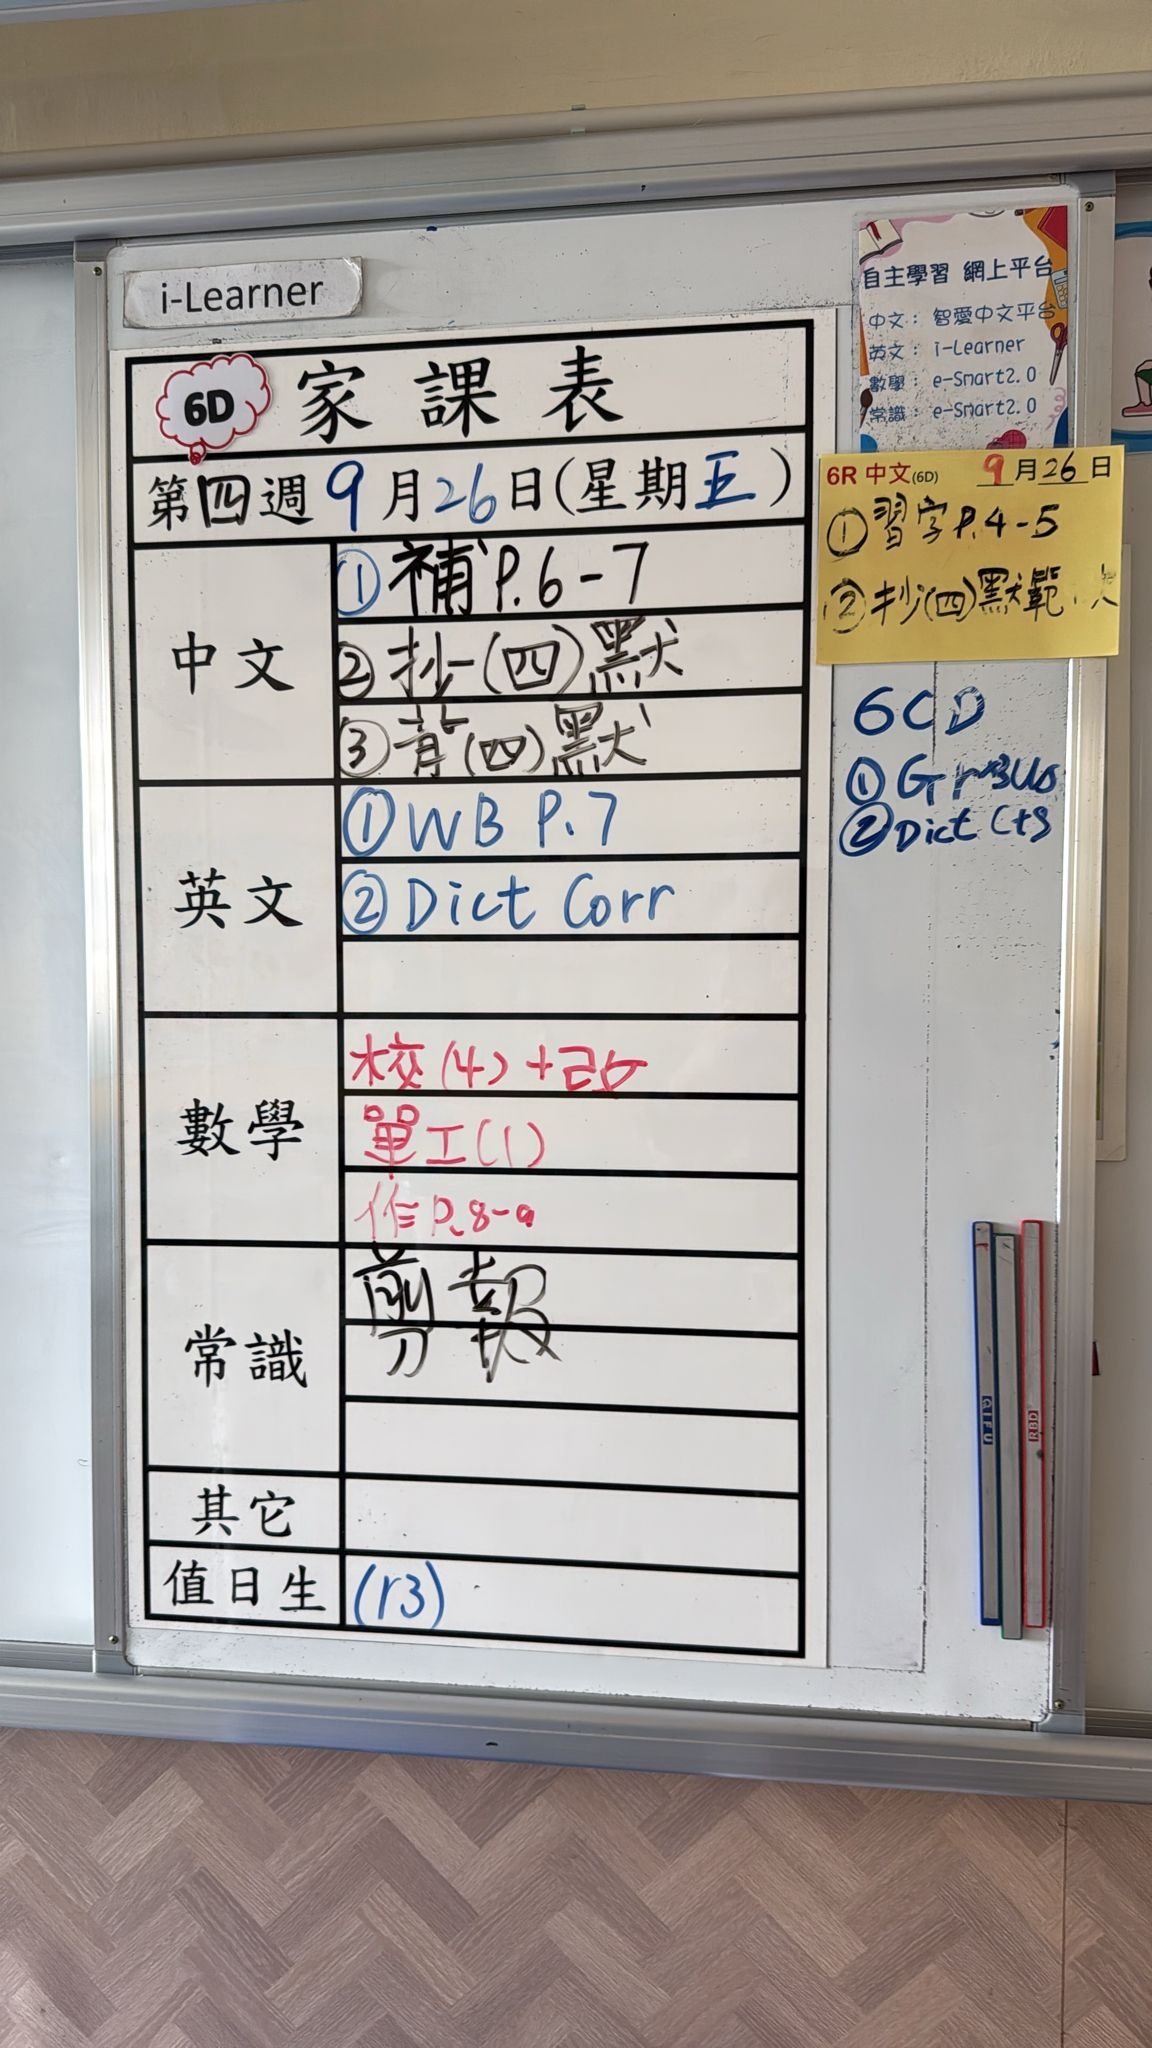 i-Learner
6D 家課表
第四週 9月26日(星期五)
中文
①補P.6-7
②抄(四)默
③背(四)默
英文
①WB P.7
②Dict Corr
數學
校(4)+改
單工(1)
作P.8-9
常識
剪報
其它
值日生
(13)
自主學習 網上平台
中文： 智愛中文平台
英文： i-Learner
數學： e-Smart2.0
常識： e-Smart2.0
6R 中文(6D) 9月26日
①習字P.4-5
②抄(四)默範
6CD
①Gr
②Dict
QIFU
RBD